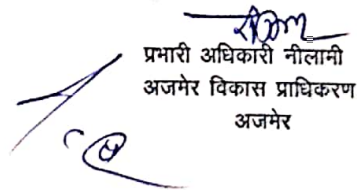 प्रभारी अधिकारी नीलामी
अजमेर विकास प्राधिकरण
अजमेर